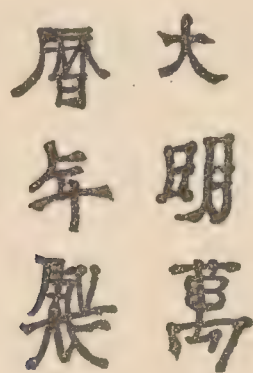 大明萬
曆年製